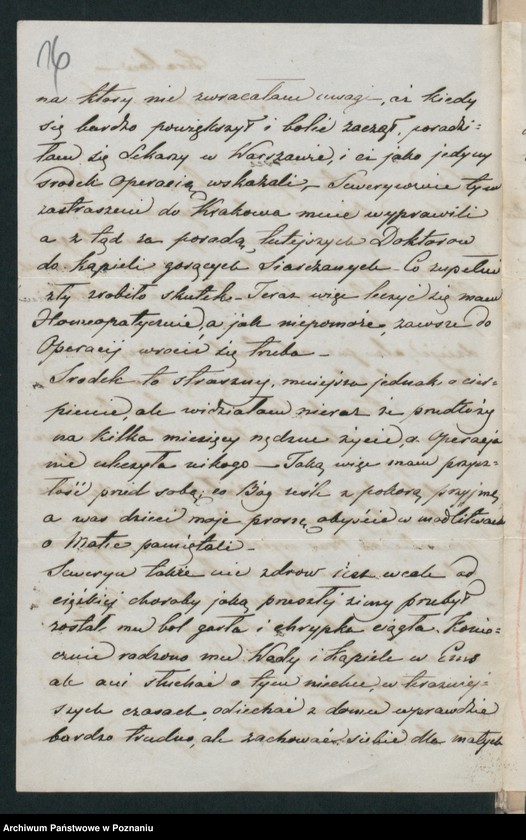 16
na który nie zwracałam uwagi, aż kiedy
się bardzo powiększył i boleć zaczął, poradzi-
łam się Lekarzy w Warszawie, i ci jako jedyny
środek Operacią wskazali, – Sewerynowie tym
zastraszeni do Krakowa mnie wyprawili
a z tąd za poradą tutejszych Doktorów
do kąpieli gorących Siarczanych – Co zupełnie
zły zrobiło skutek. Teraz więc leczyć się mam
Homeopatycznie, a jak niepomoże, zawsze do
Operacij wrócić się trzeba –
Środek to straszny, mniejsza jednak o cier-
pienie, ale widziałam nieraz że przedłuży
na kilka miesięcy nędzne życie, a Operacja
nie uleczyła nikogo – Taką więc mam przysz-
łość przed sobą, co Bóg ześle z pokorą przyjmę,
a was dzieci moje proszę, abyście w modlitwach
o Matce pamiętali –
Seweryn także nie zdrów jest wcale od
ciężkiej choroby jaką przeszłej zimy przebył
został mu ból gardła i chrypka ciągła. Konie-
cznie radzono mu Wody i Kąpiele w Ems
ale ani słuchać o tym niechce, w teraźniej-
szych czasach, odjechać z domu wprawdzie
bardzo trudno, ale zachować siebie dla małych
Archiwum Państwowe w Poznaniu